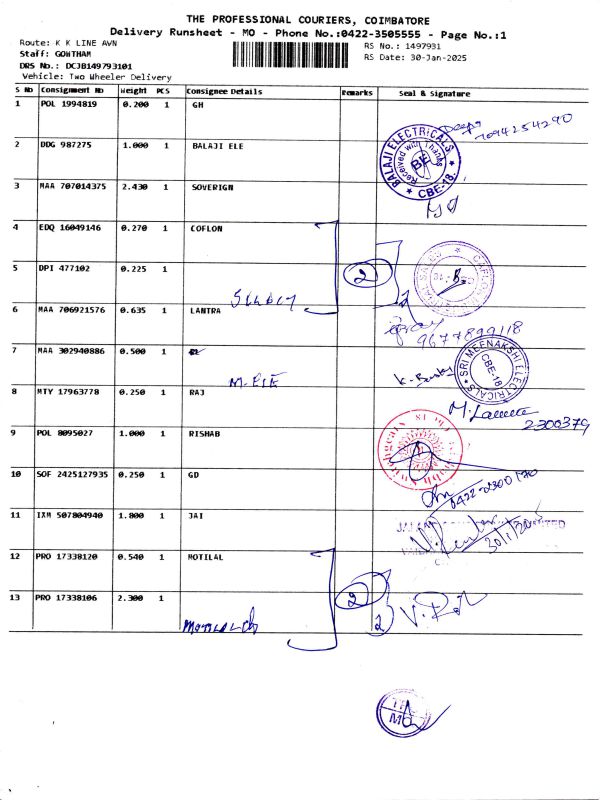 THE PROFESSIONAL COURIERS, COIMBATORE
Delivery Runsheet - MO - Phone No.:0422-3505555 - Page No.:1
Route: K K LINE AVN
RS No.: 1497931
Staff: GOWTHAM
RS Date: 30-Jan-2025
DRS No.: DCJB149793101
Vehicle: Two Wheeler Delivery
S No Consignment No Weight PCS Consignee Details Remarks Seal & Signature
1 POL 1994819 0.200 1 GH
7094254290
2 DDG 987275 1.000 1 BALAJI ELE
BALAJI ELECTRICALS
Received with Thanks
BE
* CBE-18. *
3 MAA 707014375 2.430 1 SOVERIGN
4 EDQ 16049146 0.270 1 COFLON
2
5 DPI 477102 0.225 1
2
6 MAA 706921576 0.635 1 LANTRA
9677899118
7 MAA 302940886 0.500 1
M. ELE
SRI MEENAKSHI ELECTRICALS
CBE-18
8 MTY 17963778 0.250 1 RAJ
2300379
9 POL 8095027 1.000 1 RISHAB
10 SOF 2425127935 0.250 1 GD
0422-2300170
11 IXM 507804940 1.800 1 JAI
12 PRO 17338120 0.540 1 MOTILAL
2
13 PRO 17338106 2.300 1
2